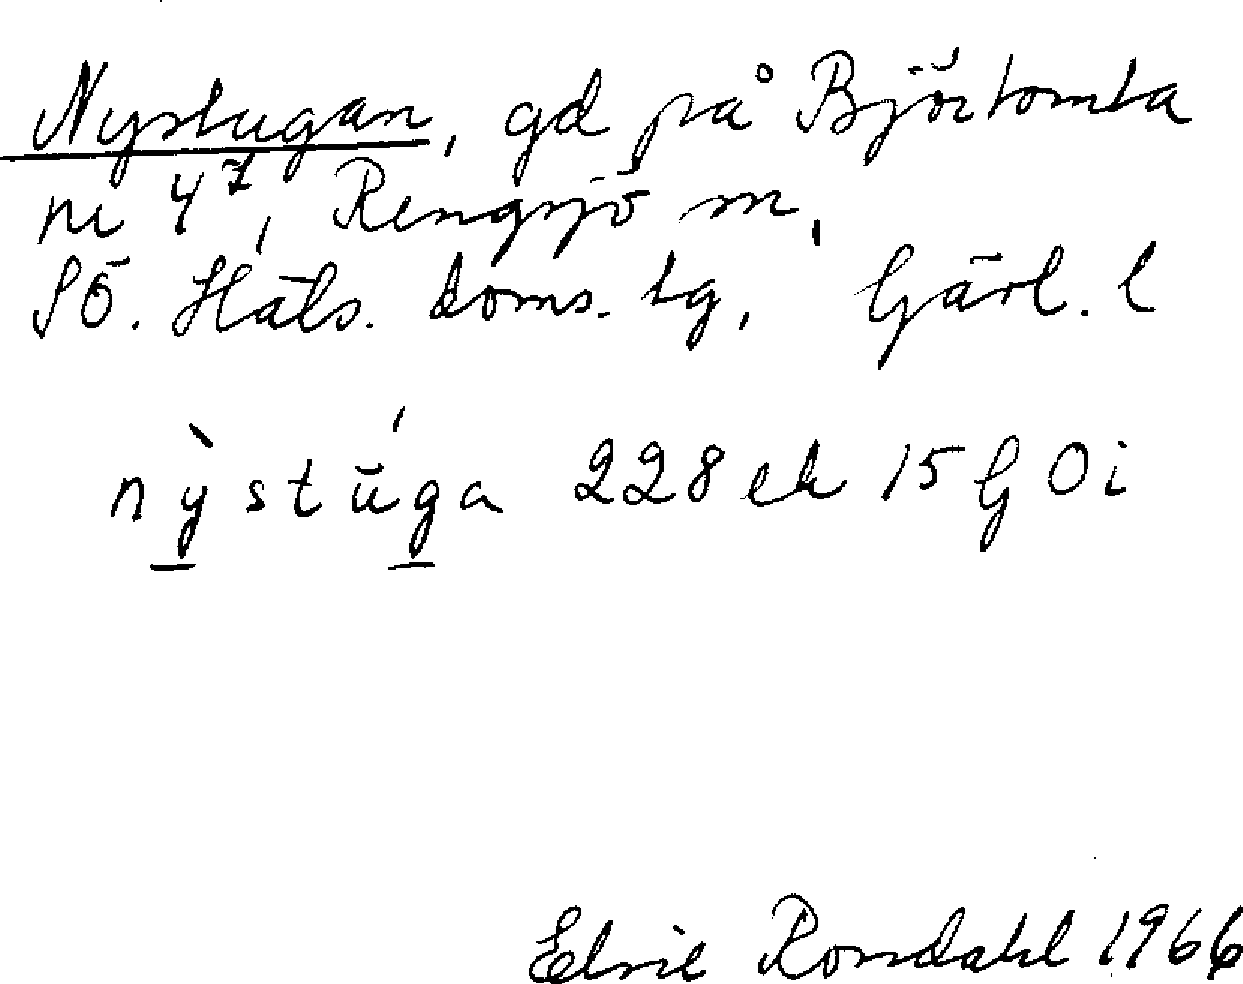 Nystugan, gd på Björtomta
nr 4⁷, Rengsjö sn,
SÖ. Häls. doms. tg, Gävl. l
nỳstū́ga 228 ek 15 G Oi
Elsie Rondahl 1966